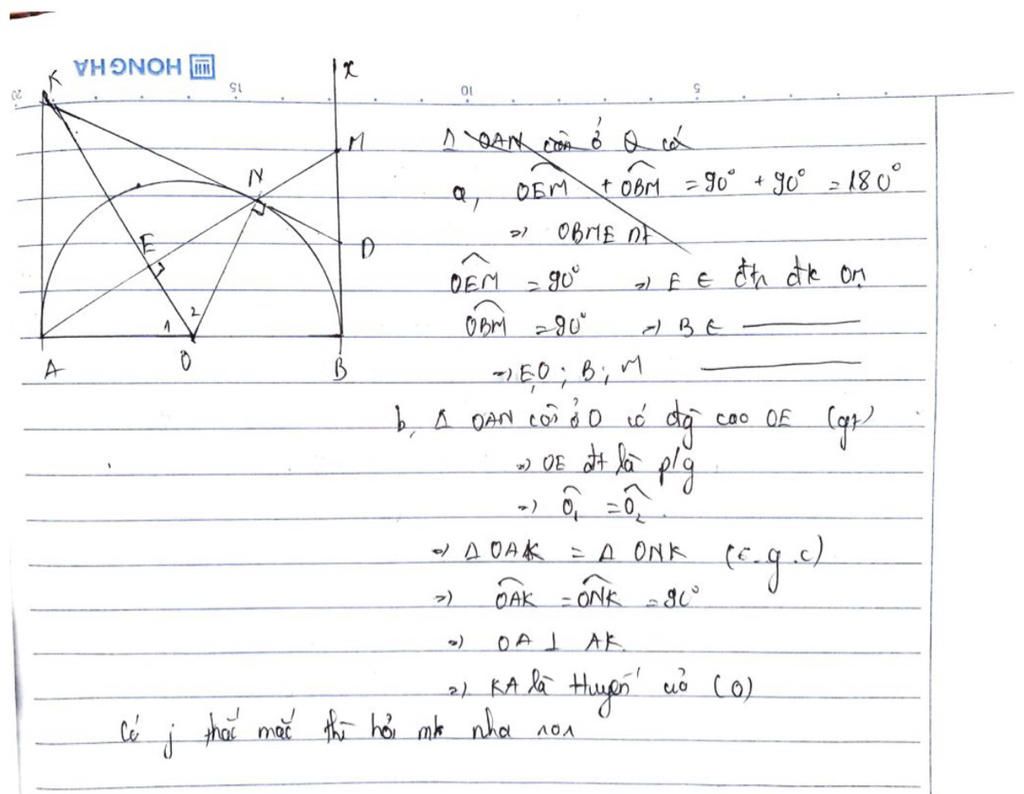 HONG HA
20 15 10 5
K
x
M
N
D
E
1 2
A O B
Δ OAN cân ở O có
a, OEM + OBM = 90° + 90° = 180°
=> OBME nt
OEM = 90° => E ∈ đtr đk OM
OBM = 90° => B ∈ ———
=> E, O; B; M ———
b, Δ OAN cân ở O có đg cao OE (gt)
=> OE đt là p/g
=> Ô1 = Ô2
=> Δ OAK = Δ ONK (c.g.c)
=> OAK = ONK = 90°
=> OA ⊥ AK
=> KA là tt uyến của (O)
Có j thắc mắc thì hỏi mk nha